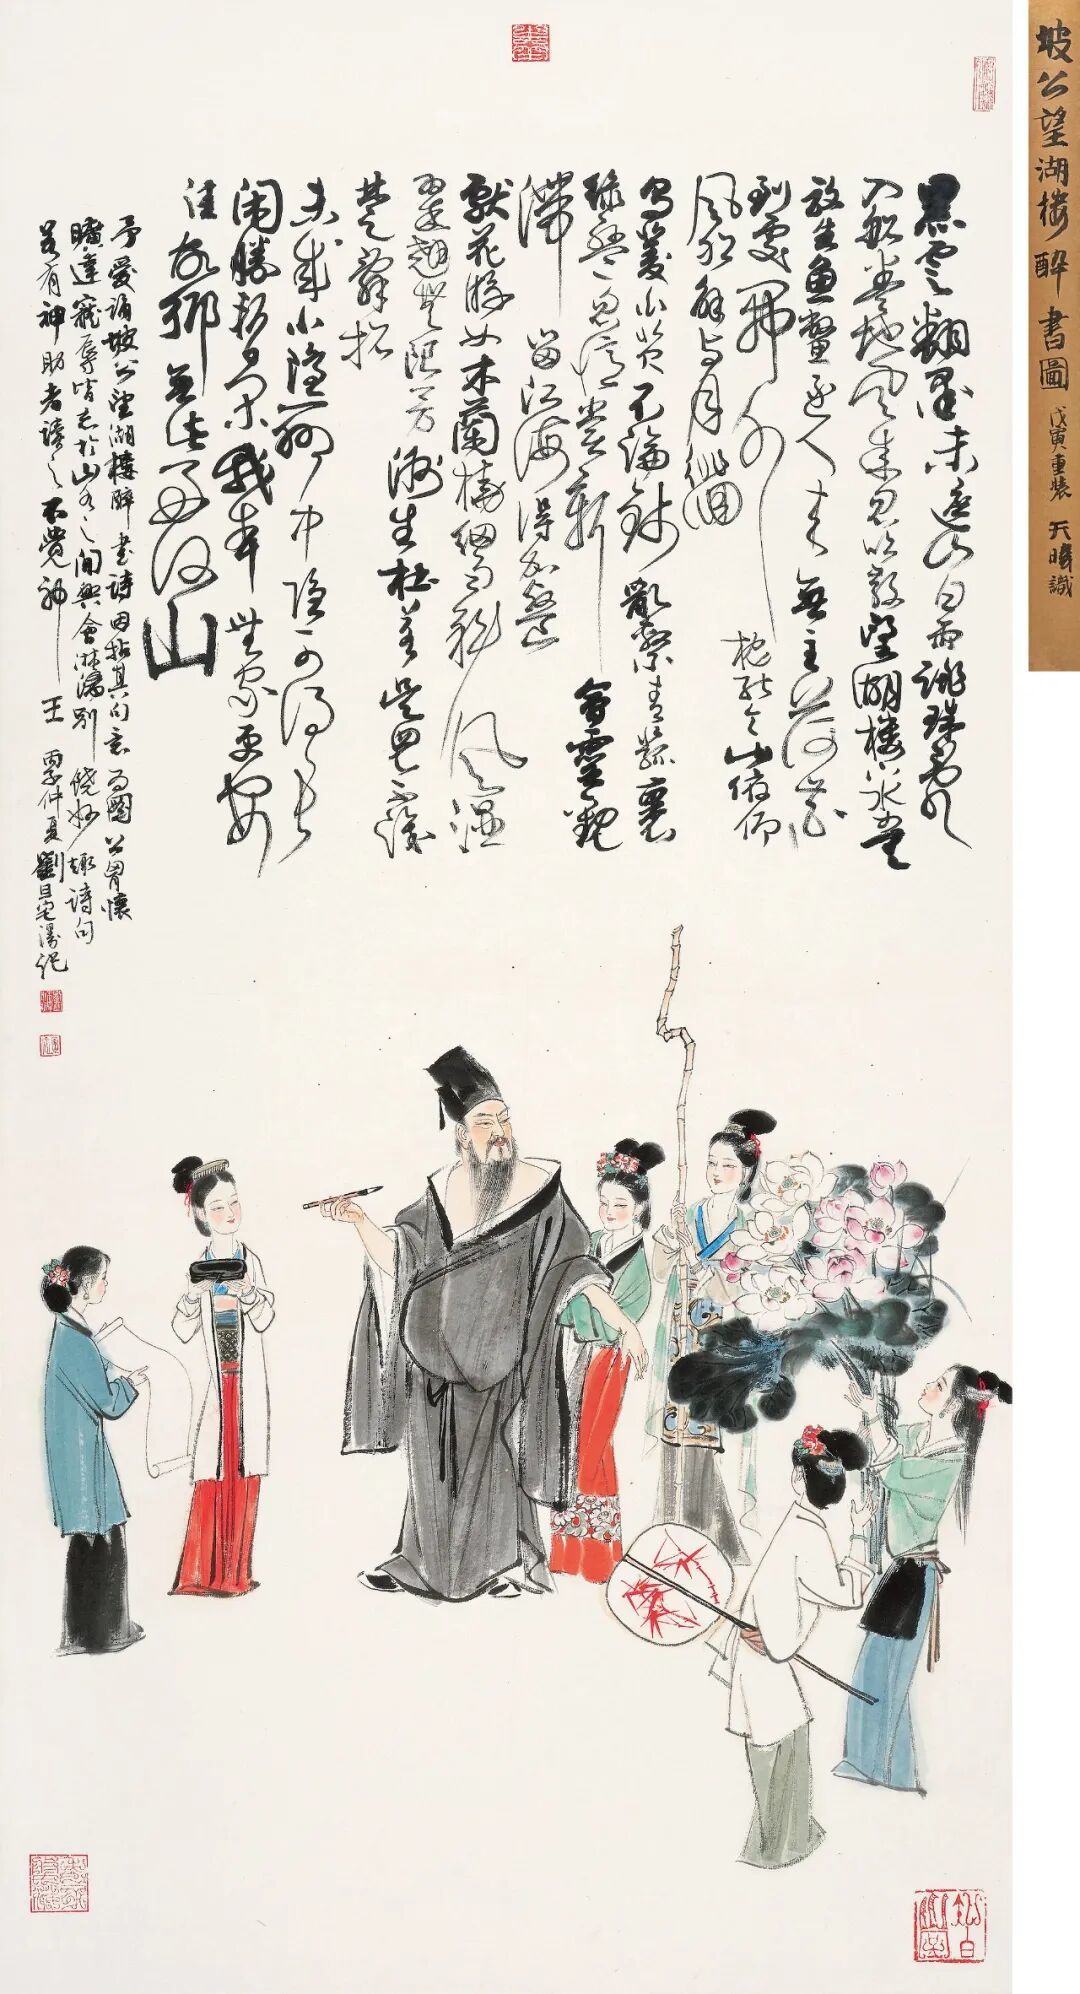 坡公望湖樓醉書圖 戊寅重裝 天暐識
黑雲翻墨未遮山白雨跳珠亂
入船卷地風來忽吹散望湖樓下水如天
放生魚鱉逐人來無主荷花
到處開水枕能令山俯仰
風船解與月徘徊
烏菱白芡不論錢亂繫青菰裹
綠盤忽憶嘗新會靈觀
滯留江海得加餐
獻花游女木蘭橈細雨斜風濕
翠翹無限芳洲生杜若吳兒不識
楚辭招
未成小隱聊中隱可得長
閑勝暫閑我本無家更安
往故鄉無此好湖山
予愛誦坡公望湖樓醉書詩因拈其句意為圖公胸懷
曠達寵辱皆忘於山水之間興會淋漓別饒妙趣詩句
若有神助者讀之不覺神王 丙子仲夏劉旦宅漫記